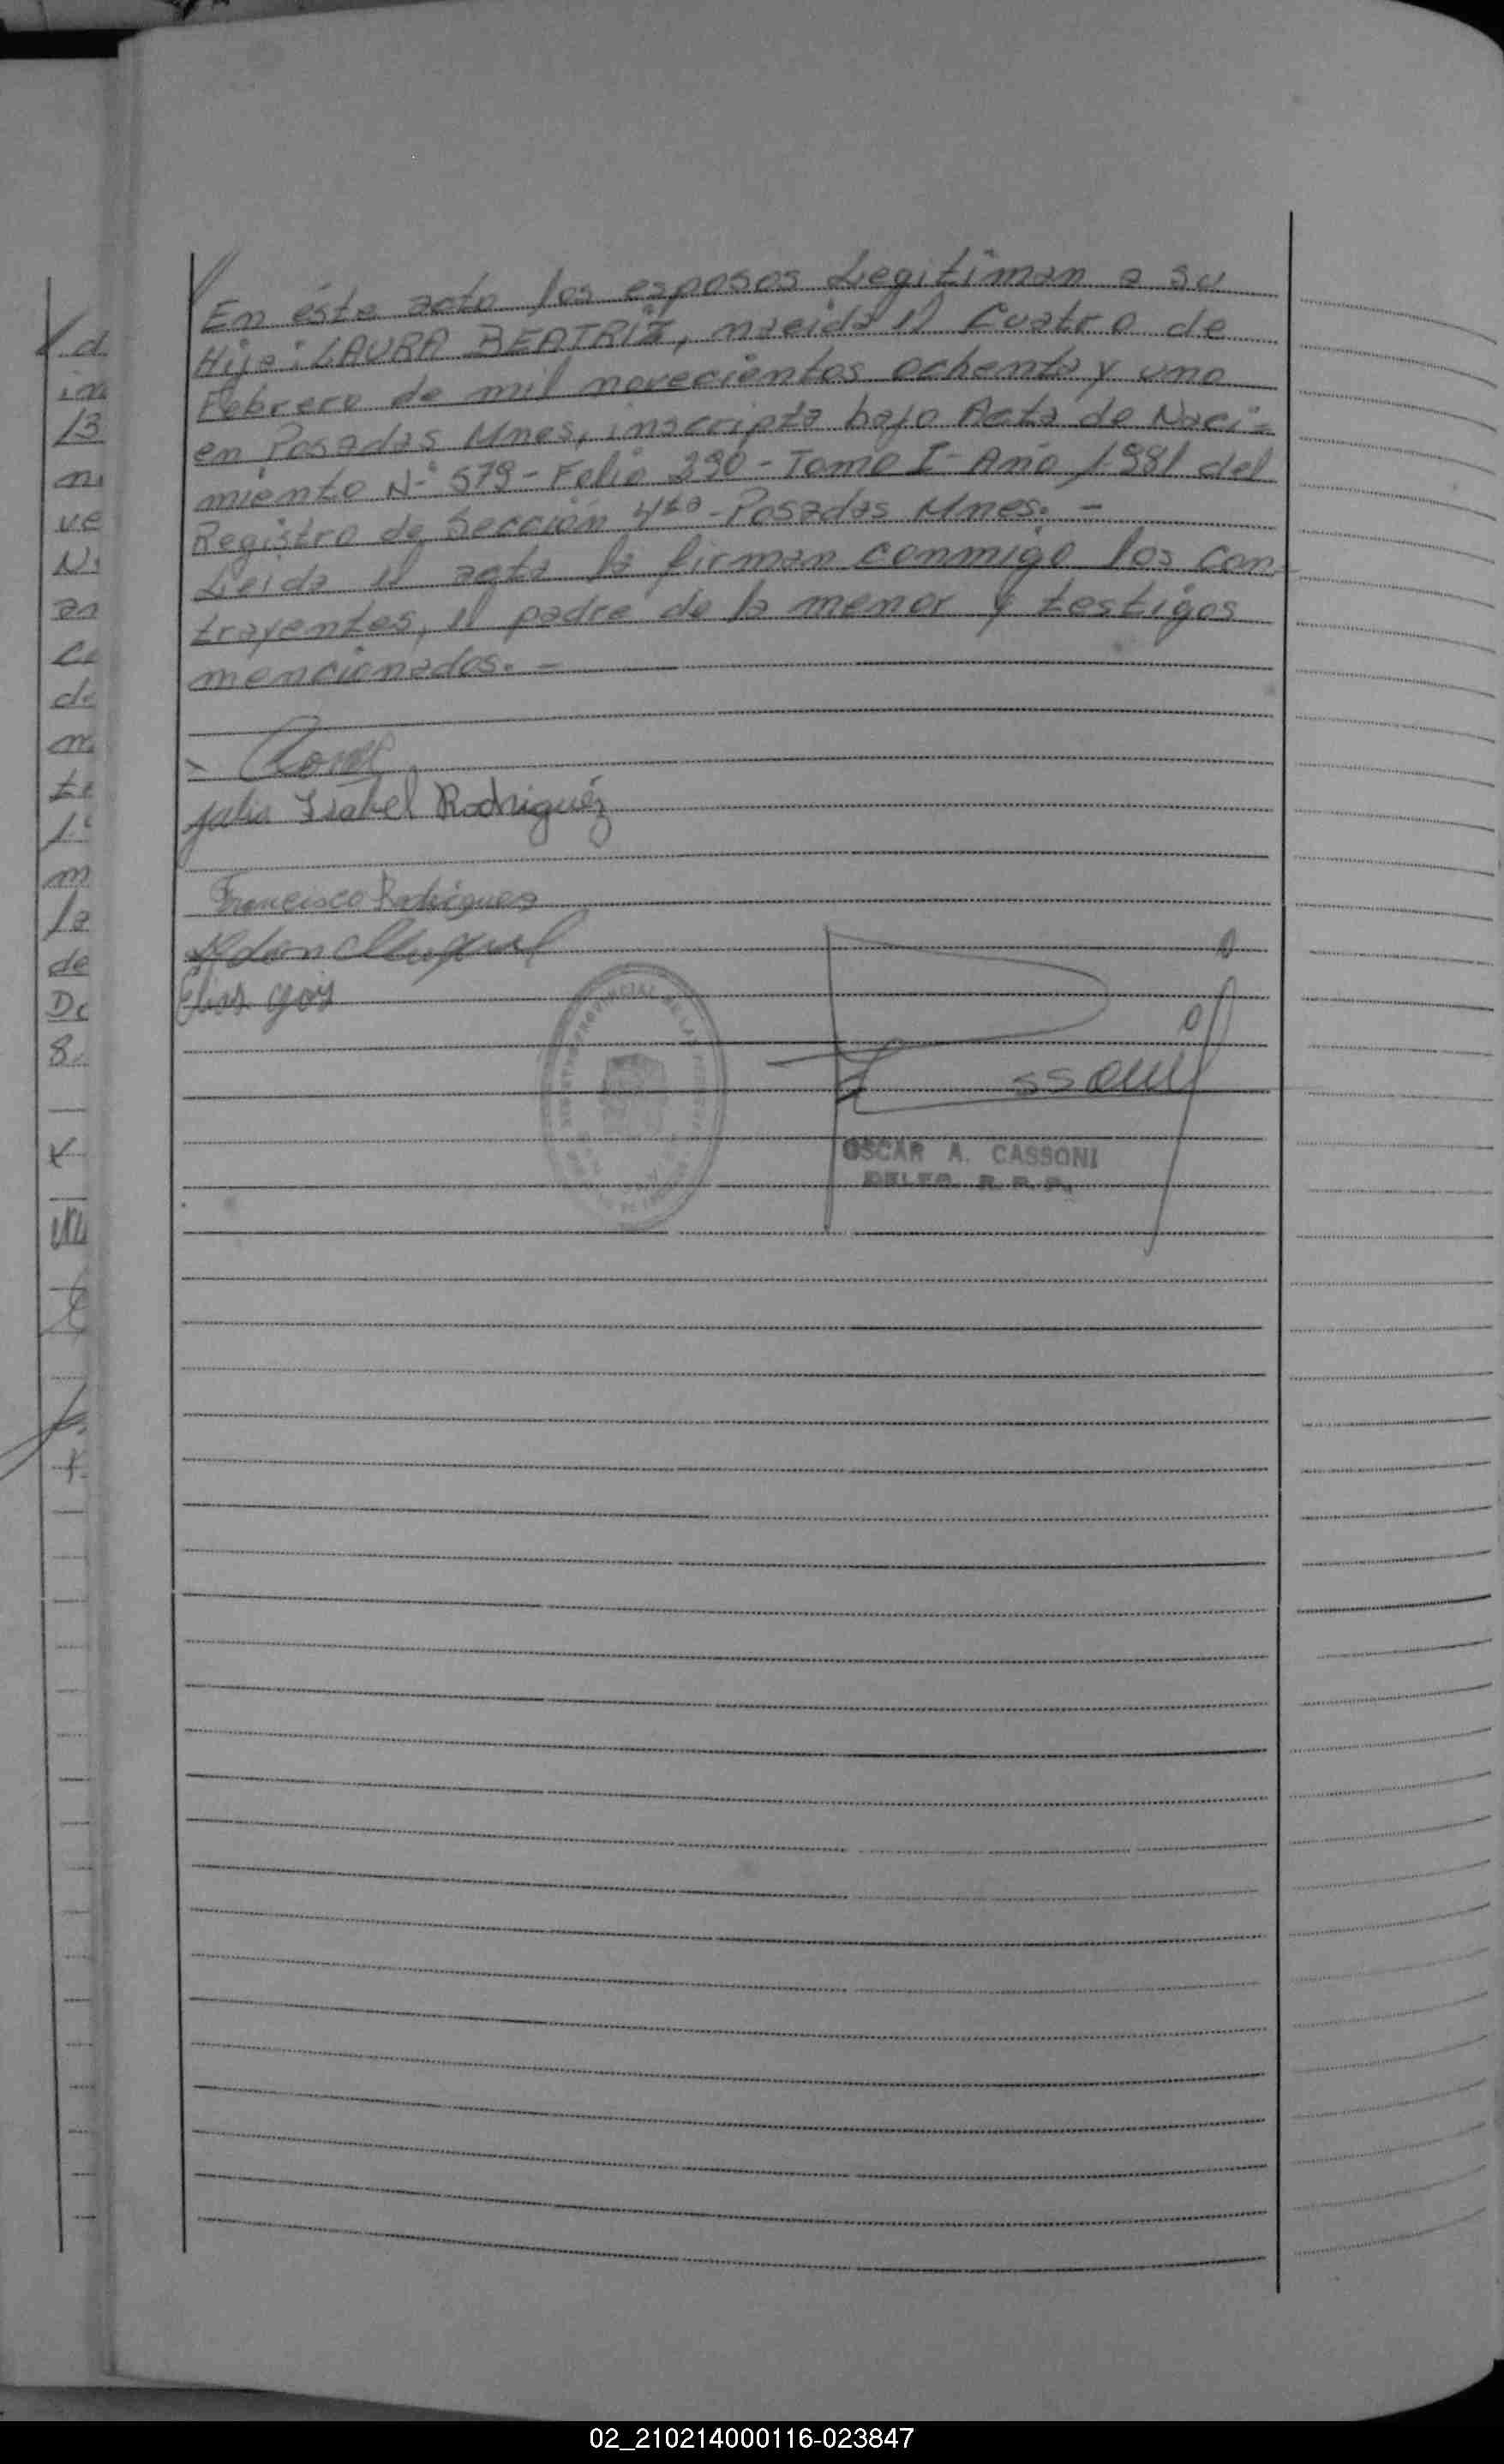 En éste acto los esposos Legitiman a su
Hija: LAURA BEATRIZ, nacida el Cuatro de
Febrero de mil novecientos ochenta y uno
en Posadas Mnes, inscripta bajo Acta de Naci=
miento Nº 579 - Folio 290 - Tomo I - Año 1981 del
Registro de Sección 4ta - Posadas Mnes. -
Leida el acta la firman conmigo los con-
trayentes, el padre de la menor y testigos
mencionados. -
Julia Isabel Rodriguéz
Francisco Rodrigues
Elias
OSCAR A. CASSONI
DELEG. R. P. P.
02_210214000116-023847